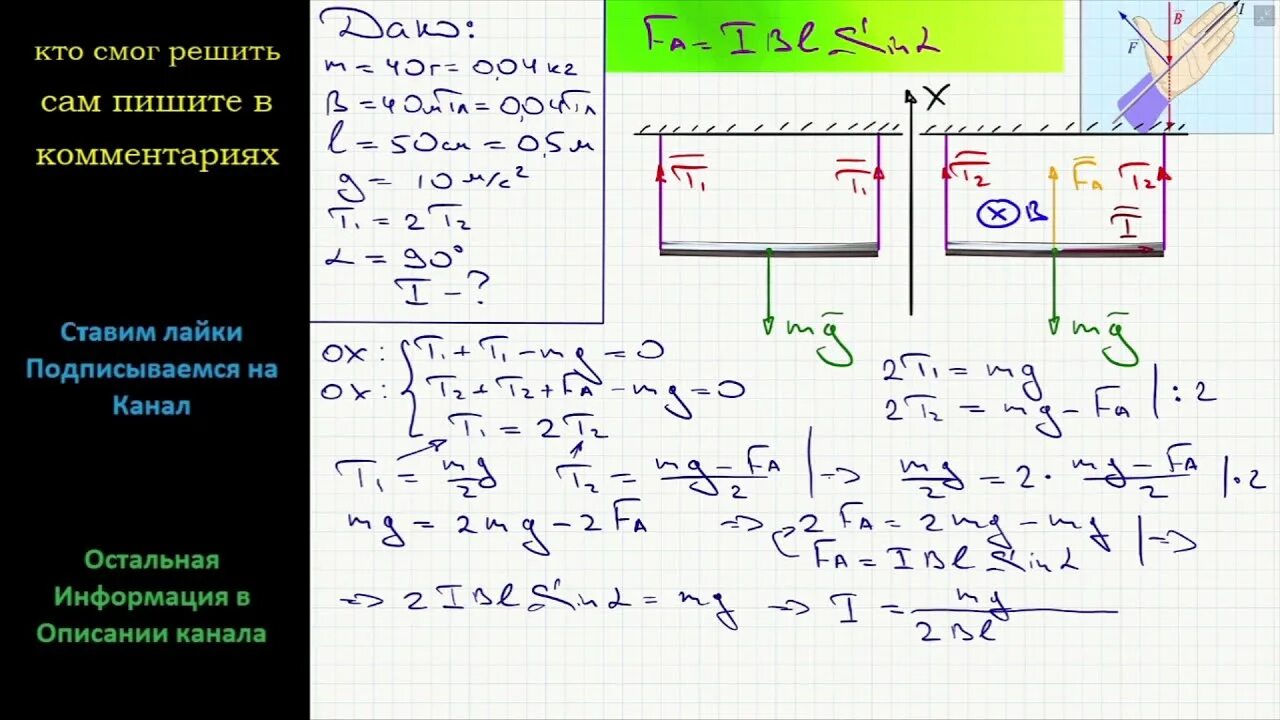 кто смог решить
сам пишите в
комментариях
Ставим лайки
Подписываемся на
Канал
Остальная
Информация в
Описании канала
Дано:
m = 40г = 0,04 кг
B = 40мТл = 0,04Тл
l = 50см = 0,5 м
g = 10 м/с²
T₁ = 2T₂
α = 90°
I - ?
F_A = I B l Sin α
B
I
F
X
T₁ T₁
mg
T₂ F_A T₂
x B I
mg
ox: T₁ + T₁ - mg = 0
ox: T₂ + T₂ + F_A - mg = 0
T₁ = 2T₂
2T₁ = mg
2T₂ = mg - F_A | : 2
T₁ = mg/2 T₂ = (mg - F_A)/2 | => mg/2 = 2 · (mg - F_A)/2 | · 2
mg = 2mg - 2F_A => 2F_A = 2mg - mg | =>
F_A = I B l Sin α
=> 2 I B l Sin α = mg => I = mg/(2Bl)